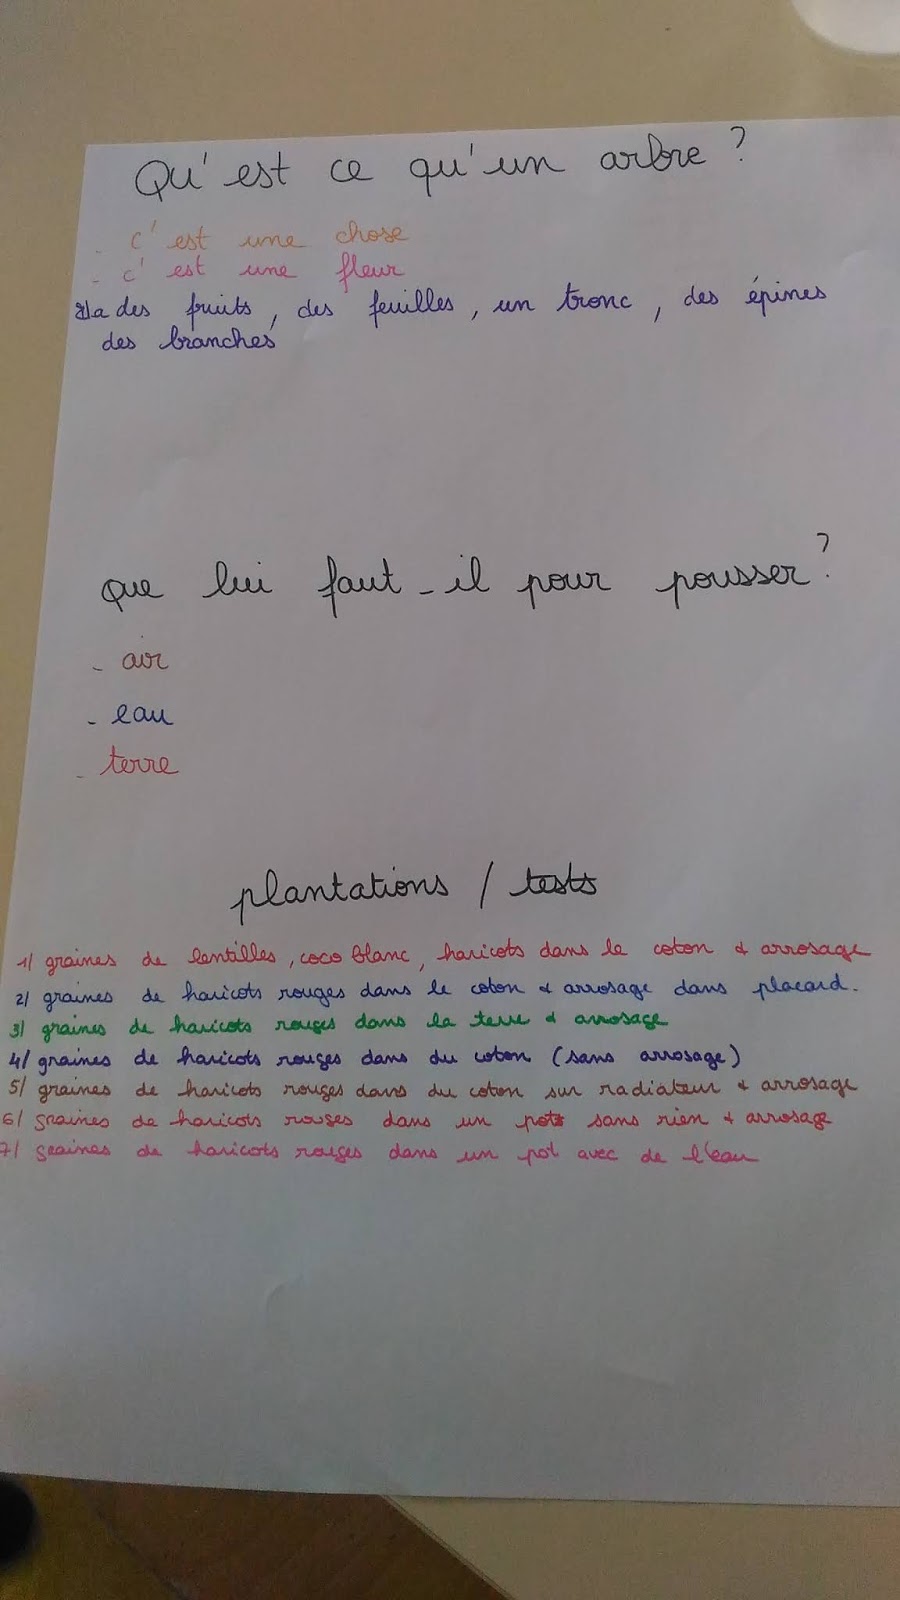 Qu'est ce qu'un arbre ?
- c'est une chose
- c'est une fleur
il a des fruits, des feuilles, un tronc, des épines
des branches
Que lui faut-il pour pousser ?
- air
- eau
- terre
plantations / tests
1/ graines de lentilles, coco blanc, haricots dans le coton + arrosage
2/ graines de haricots rouges dans le coton + arrosage dans placard.
3/ graines de haricots rouges dans la terre + arrosage
4/ graines de haricots rouges dans du coton (sans arrosage)
5/ graines de haricots rouges dans du coton sur radiateur + arrosage
6/ graines de haricots rouges dans un pots sans rien + arrosage
7/ graines de haricots rouges dans un pot avec de l'eau